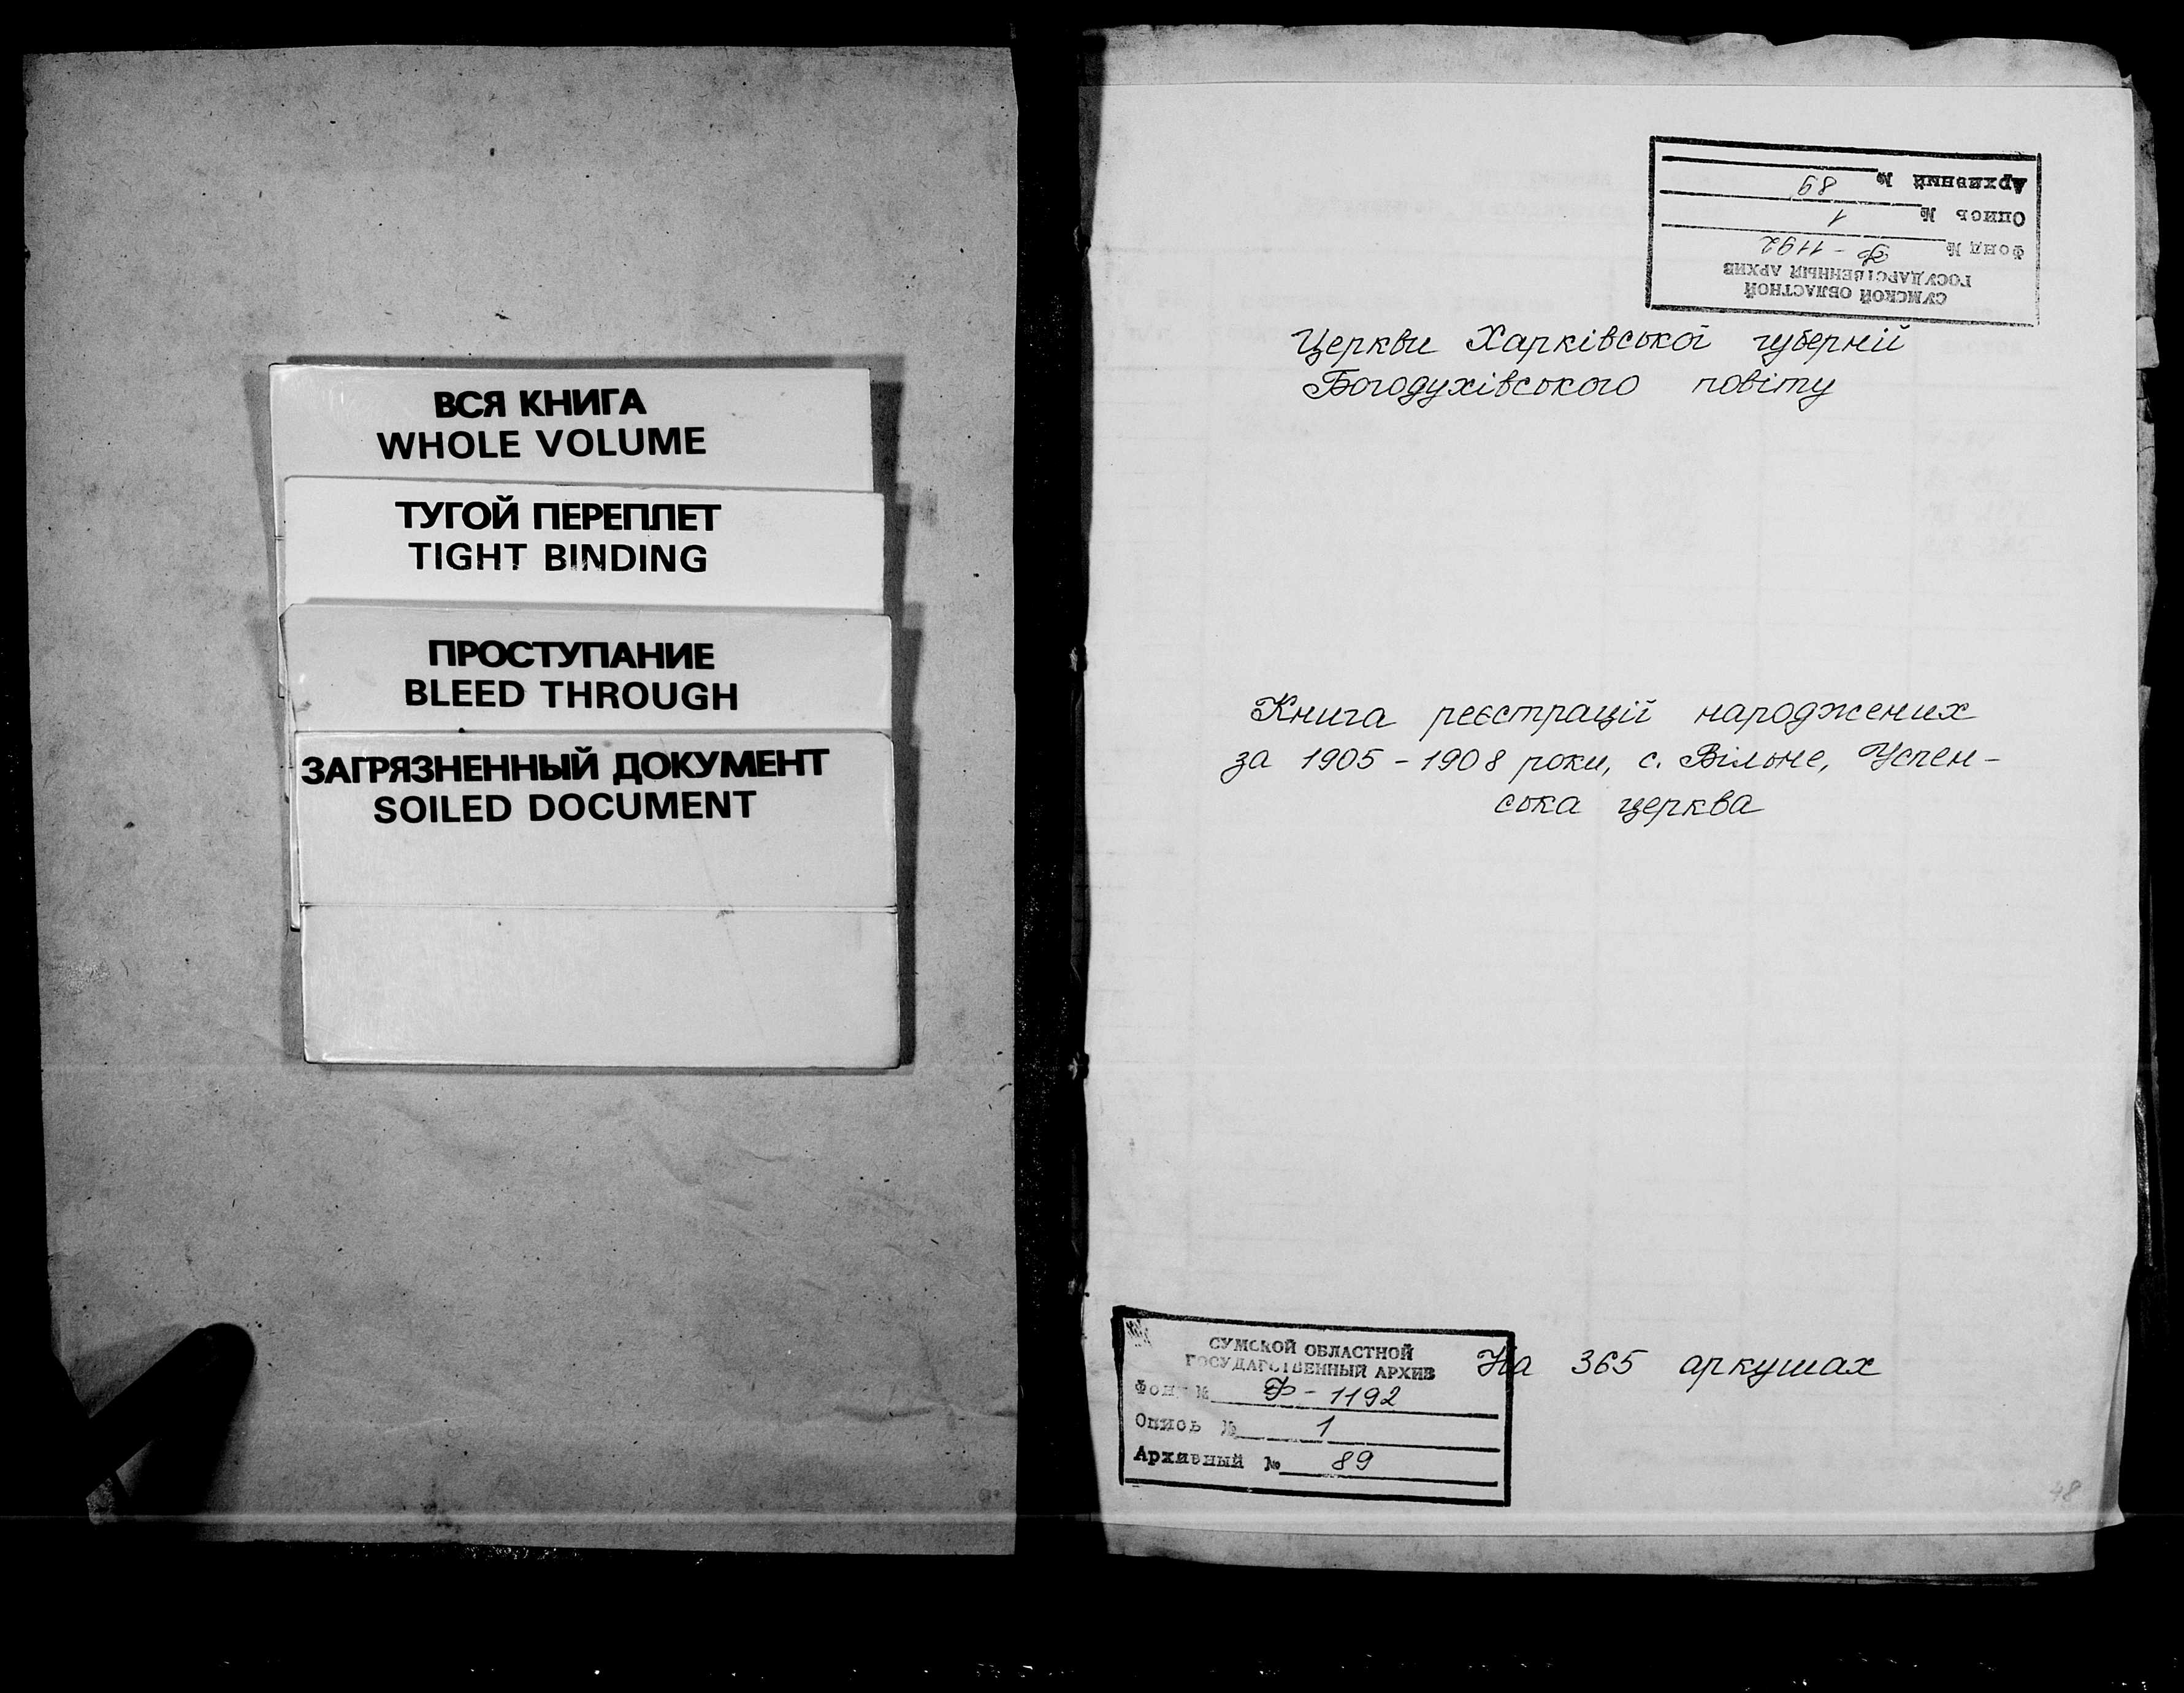 ВСЯ КНИГА
WHOLE VOLUME
ТУГОЙ ПЕРЕПЛЕТ
TIGHT BINDING
ПРОСТУПАНИЕ
BLEED THROUGH
ЗАГРЯЗНЕННЫЙ ДОКУМЕНТ
SOILED DOCUMENT
СУМСКОЙ ОБЛАСТНОЙ
ГОСУДАРСТВЕННЫЙ АРХИВ
Фонд № Ф-1192
Опись № 1
Архивный № 89
Церкви Харківської губерній
Богодухівського повіту
Книга реєстрації народжених
за 1905-1908 роки, с. Вільне, Успен-
ська церква
На 365 аркушах
СУМСКОЙ ОБЛАСТНОЙ
ГОСУДАРСТВЕННЫЙ АРХИВ
Фонд № Ф-1192
Опись № 1
Архивный № 89
48